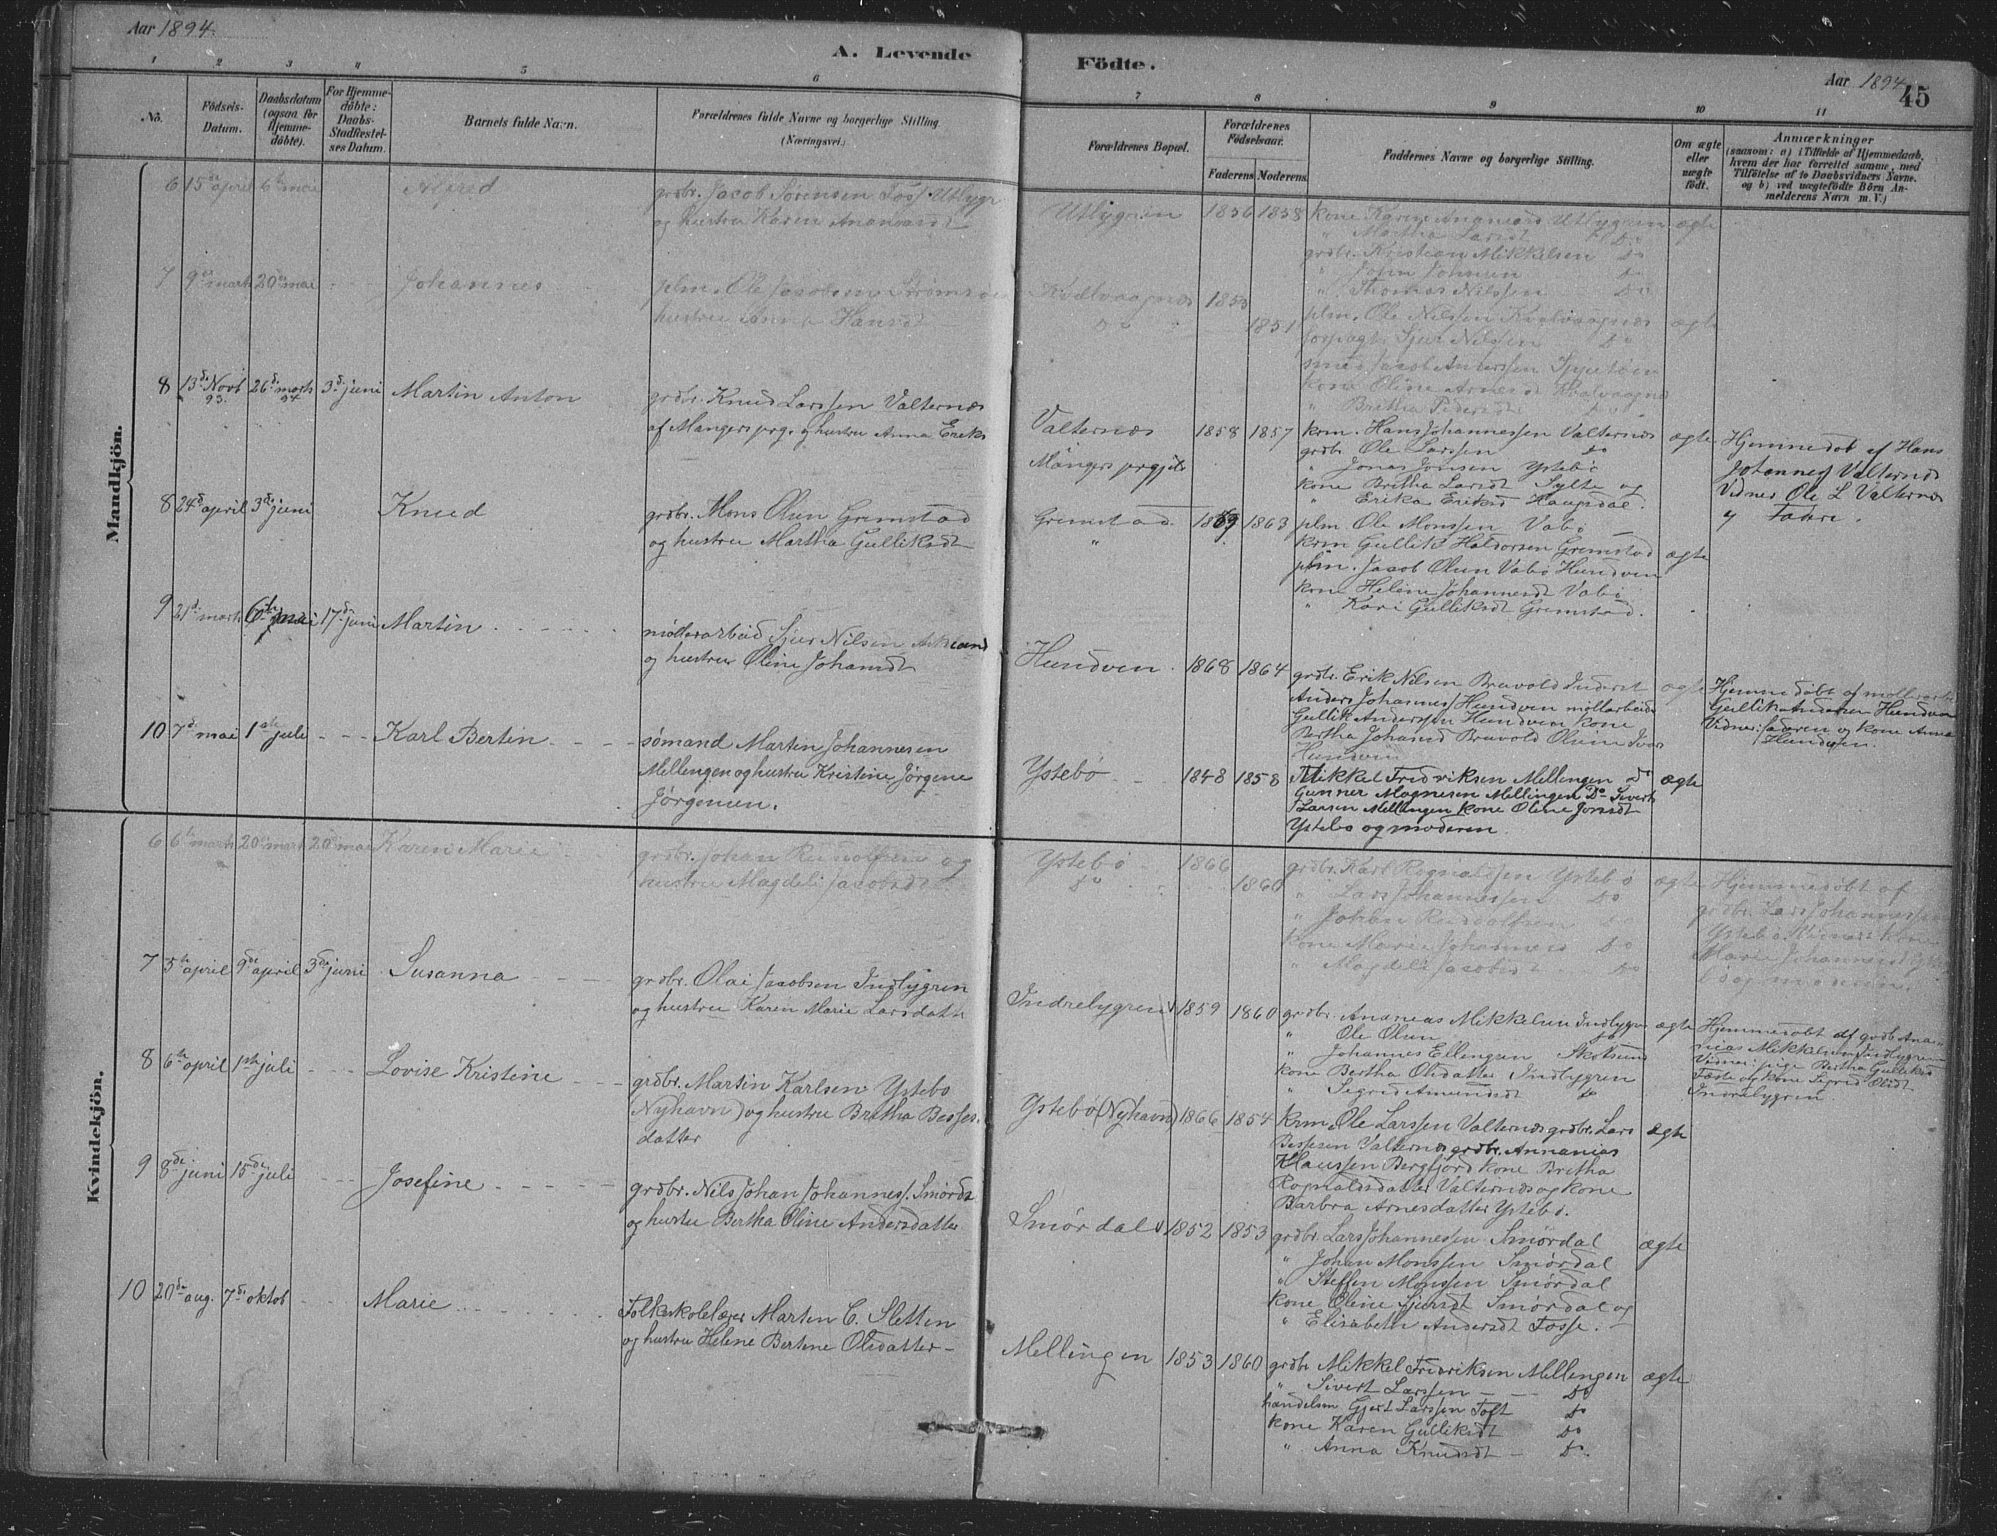 Aar 1894.
A. Levende Födte.
Aar 1894
45
1 2 3 4 5 6 7 8 9 10 11
No.
Födsels-Datum.
Daabsdatum (ogsaa for Hjemme-döbte).
For Hjemme-döbte: Daabs-Stadfæstel-ses Datum.
Barnets fulde Navn.
Forældrenes fulde Navne og borgerlige Stilling (Næringsvei.)
Forældrenes Bopæl.
Forældrenes Födselsaar.
Faderens. Moderens.
Faddernes Navne og borgerlige Stilling.
Om ægte eller uægte födt.
Anmærkninger
(saasom: a) i Tilfælde af Hjemmedaab, hvem der har forrettet samme, med Tilföielse af to Daabsvidners Navne, og b) ved uægtefödte Börn An-melderens Navn m. V.)
Mandkjön.
6 15de april 6te mai Alfred
grdbr. Jacob Sørensen
og hustru Karen
Utbygren 1856 1858
kone Karen Ananias Utbygren ægte
" Martha Larsdt Do
grdbr. Kristian Mikkelsen Do
" John Johnsen Do
" Thomas Nilssen Do
7 9de marts 20de mai Johannes
plm. Ole Jacobsen
hustru Anna Hansdt
Kvalvaagnes 1853
Do 1851
plm. Ole Nilsen Kvalvaagnes ægte
Sjur Nilssen Do
Jacob Anderssen
kone Oline Arnesdt Kvalvaagnes
" Britha Pedersdt Do
8 13de Novb 93. 26de marts 94 3de juni Martin Anton
grdbr. Knud Larssen Valternæs
af Mangers prg. og hustru Anna Eriks
Valternæs 1858 1857
Mangers prgjld
krm. Hans Johannessen Valternæs ægte
grdbr. Ole Larssen Do
" Jonas Jonsen Ystebö
kone Britha Larsdt Sylte og
" Erika Eriksd Haugsdal.
Hjemmedöb af Hans
Johannes Valternæs
Vidner Ole L Valternæs
8 24de april 3de juni Knud
grdbr. Mons Olsen Gremstad
og hustru Martha Gulliksdt
Gremstad. 1869 1863
"
plm. Ole Monssen Vabö
krm Gullik Haldorsen Gremstad ægte
plm. Jacob Olsen Vabö Hundven
kone Helene Johannesdt Vabö
" Kari Gulliksdt Gremstad.
9 21de marts 6te mai 17de juni Martin
möllerarbeid Sjur Nilsen
og hustru Oline Johansdt
Hundven. 1868 1864
grdbr. Erik Nilsen Bruvold Inderst ægte
Anders Johannes Hundven möllarbeid
Gullik Anderssen Hundven kone
Bertha Johansd Bruvold
Hundven
Hjemmedöbt af möllerarb
Gullik Andersen Hundven
Vidner: faderen og kone Anna
Hundven.
10 7de mai 1ste juli Karl Bertin
sömand Martin Johannesen
Mellengen og hustru Kristine Jörgene
Jörgensen.
Ystebö 1848 1858
Mikkel Fredriksen Mellengen Do ægte
Gunner Magnesen Mellingen Do Sivert
Larsen Mellengen kone Oline Jonsdt
Ystebö og moderen.
Kvindekjön.
6 6te marts 20de marts 20de mai Karen Marie
grdbr. Johan Rudolfsen og
hustru Magdeli Jacobsdt
Ystebö 1866
Do 1860
grdbr. Karl Rognaldsen Ystebö ægte
" Lars Johannessen Do
" Johan Rudolfsen
kone Marie Johannesd Do
" Magdeli Jacobsdt Do
Hjemmedöbt af
grdbr. Lars Johannessen
Ystebö. Vidner: kone
Marie Johannesd
7 5te april 9de april 3de juni Susanna
grdbr. Olai Jacobsen Indbygren
og hustru Karen Marie Larsdatt
Indrebygren 1859 1860
grdbr. Ananias Mikkelsen Indbygre ægte
" Ole Olsen Do
" Johannes Ellengsen Skotsund
kone Bertha Olsdatter Indbygren
" Sigrid Amundsdt Do
Hjemmedöbt af grdb. Ana-
nias Mikkelsen Indbygren
Vidner: pige Bertha Gulliksd
Fæste og kone Sigrid Olsdt
Indrebygren
8 6te april 1ste juli Lovise Kristine
grdbr. Martin Karlsen Ystebö
(Nyhavn) og hustru Britha Besses-
datter
Ystebö (Nyhavn) 1866 1854
krm. Ole Larssen Valternæs grdbr. Lars ægte
Bessesen Valternæs grdbr. Annanias
Klaussen Bergfjord kone Britha
Rognaldsdatter Valternæs og kone
Barbra Arnesdatter Ystebö.
9 8de juni 15de juli Josefine
grdbr. Nils Johan Johanness. Smörd
og hustru Bertha Oline Andersdatter
Smördal 1852 1853
grdbr. Lars Johannessen Smördal ægte
" Johan Monssen Smördal
" Steffen Monssen Smördal
kone Oline Sjursdt Smördal og
" Elisabeth Andersdt Fosse.
10 20de aug. 7de oktob Marie
Folkeskolelærer Marten C. Sletten
og hustru Helene Bertine Olsdatter
Mellingen 1853 1860
grdbr Mikkel Fredriksen Mellengen ægte
" Sivert Larssen Do
handelsm Gjert Larssen Toft Do
kone Karen Gulliksdt Do
" Anna Knudsdt Do.